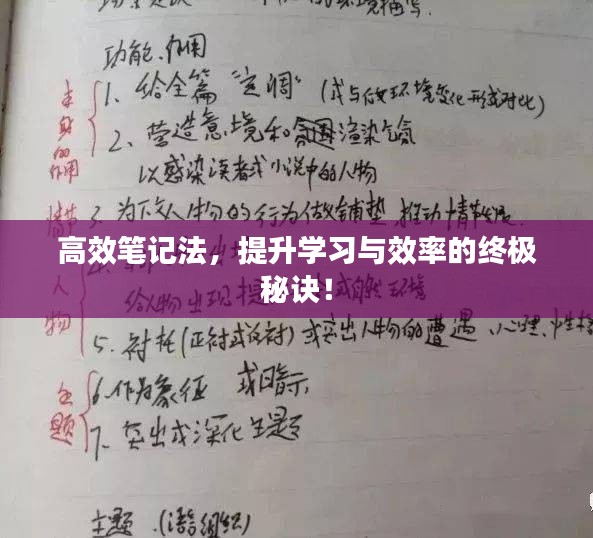 的环境描写.
功能.作用
主身的作用
1、给全篇“定调”(或与后文环境变化形成对比)
2、营造意境和氛围渲染气氛
以感染读者或小说中的人物
情节
3、为下文人物的行为做铺垫 推动情节发展.
高效笔记法，提升学习与效率的终极
秘诀！
人物
给人物出现提 或自然环境
5、衬托(正衬或反衬)或突出人物的遭遇、心理、性格
主题
6.作为象征 或暗示,
7、突出或深化主题
主题.(语言组织)